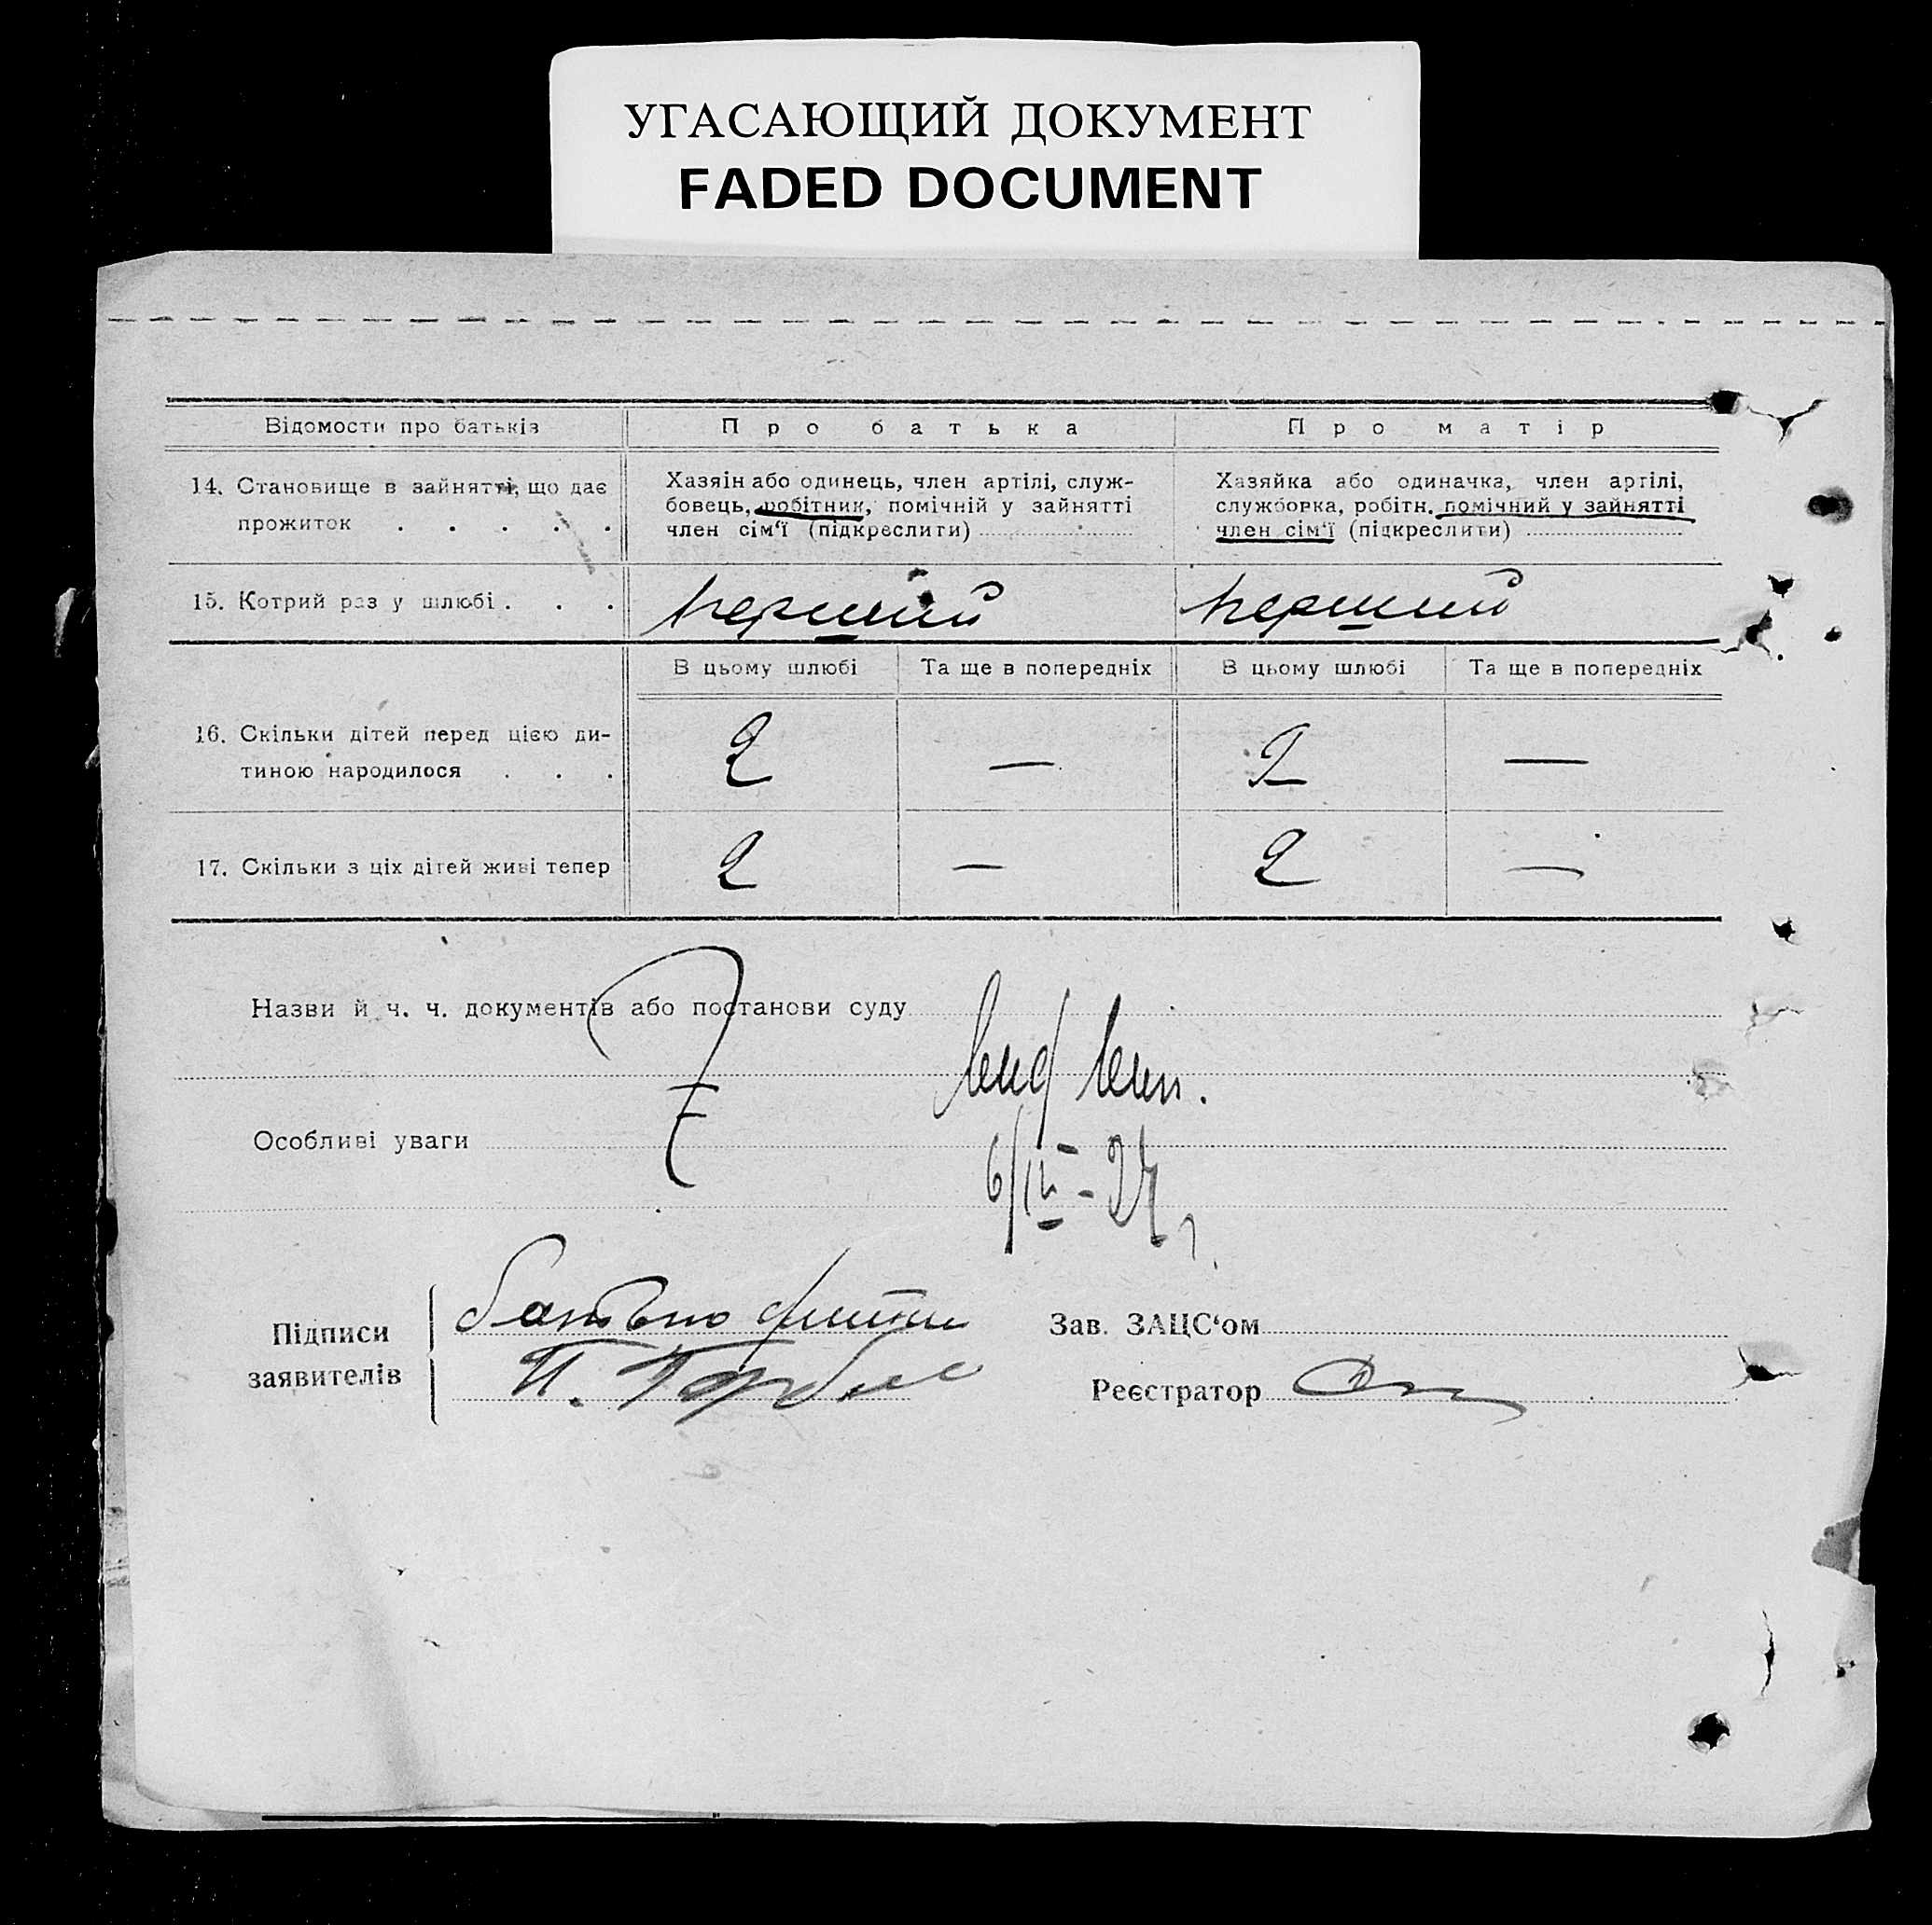 УГАСАЮЩИЙ ДОКУМЕНТ
FADED DOCUMENT
Відомости про батьків
Про батька
Про матір
14. Становище в зайнятті, що дає
прожиток . . . . .
Хазяін або одинець, член артілі, служ-
бовець, робітник, помічній у зайнятті
член сім‘ї (підкреслити)
Хазяйка або одиначка, член артілі,
службовка, робітн. помічний у зайнятті
член сім‘ї (підкреслити)
15. Котрий раз у шлюбі . . .
перший
перший
В цьому шлюбі
Та ще в попередніх
В цьому шлюбі
Та ще в попередніх
16. Скільки дітей перед цією ди-
тиною народилося . . .
2
—
2
—
17. Скільки з ціх дітей живі тепер
2
—
2
—
Назви й ч. ч. документів або постанови суду
Особливі уваги
Підписи
заявителів
батько
Зав. ЗАЦС‘ом
Реєстратор